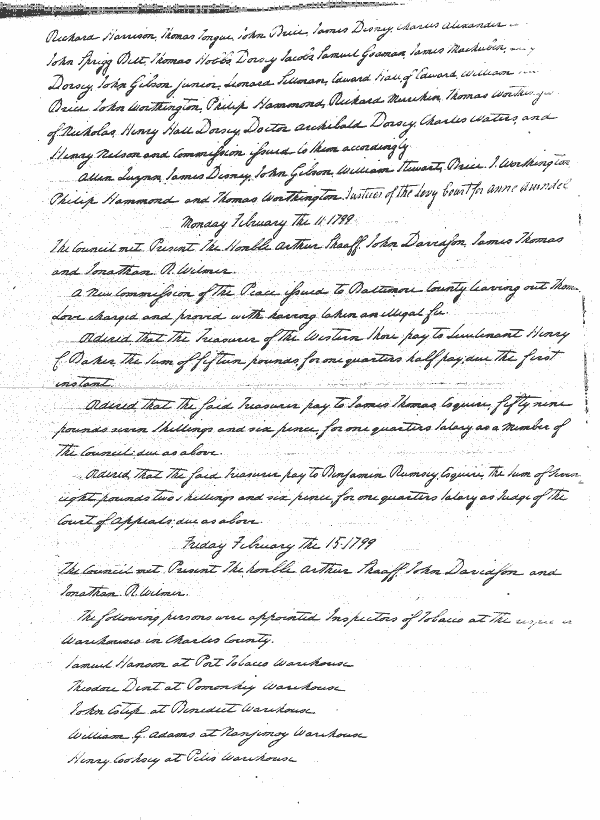 Richard Harrison, Thomas Tongue, John Brice, James Disney Charles Alexander
John Sprigg Belt, Thomas Hobbs, Dorsey Jacob, Samuel Godman, James Mackubin,
Dorsey, John Gibson junior, Leonard Sellman, Edward Hall of Edward, William
Brice John Worthington, Philip Hammond, Richard Merriken, Thomas
of Nicholas, Henry Hall Dorsey, Doctor Archibald Dorsey, Charles Waters, and
Henry Nelson and Commission issued to them accordingly.
Allen Quynn, James Disney, John Gibson, William Stewart, Brice J. Worthington
Philip Hammond and Thomas Worthington Justices of the Levy Court for Anne Arundel
Monday February the 11. 1799
The Council met. Present The Honble Arthur Shaaff, John Davidson, James Thomas
and Jonathan R. Wilmer.
A New Commission of the Peace issued to Baltimore County leaving out
Love charged and proved with having taken an illegal fee.
Ordered that the Treasurer of the Western Shore pay to Lieutenant Henry
C. Baker the sum of fifteen pounds, for one quarters half pay, due the first
instant.
Ordered, that the said Treasurer pay to James Thomas, Esquire, fifty nine
pounds seven shillings and six pence, for one quarters salary as a Member of
the Council; due as above.
Ordered, that the said Treasurer pay to Benjamin Rumsey, Esquire, the sum of
eight, pounds two shillings and six pence, for one quarters salary as Judge of the
Court of Appeals; due as above.
Friday February the 15. 1799
The Council met. Present The honble Arthur Shaaff, John Davidson and
Jonathan R. Wilmer.
The following persons were appointed Inspectors of Tobacco at the
Warehouses in Charles County.
Samuel Hanson at Port Tobacco Warehouse
Theodore Dent at Pomonkey Warehouse
John Estep at Benedict Warehouse
William G. Adams at Nanjimoy Warehouse
Henry Cooksey at Piles Warehouse